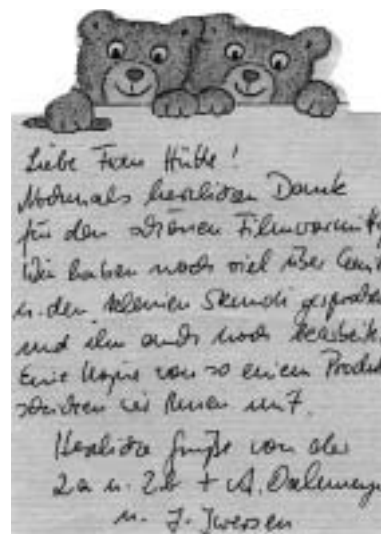 Liebe Frau Hütte!
Nochmals herzlichen Dank
für den schönen Filmvormitt
Wir haben noch viel über
u. den kleinen gesprochen
und ihn auch noch bearbeit.
Eine Kopie von so einem Produkt
schicken wir Ihnen mit.
Herzliche Grüße von der
2a u. 2b + A.
u. J. Iwersen